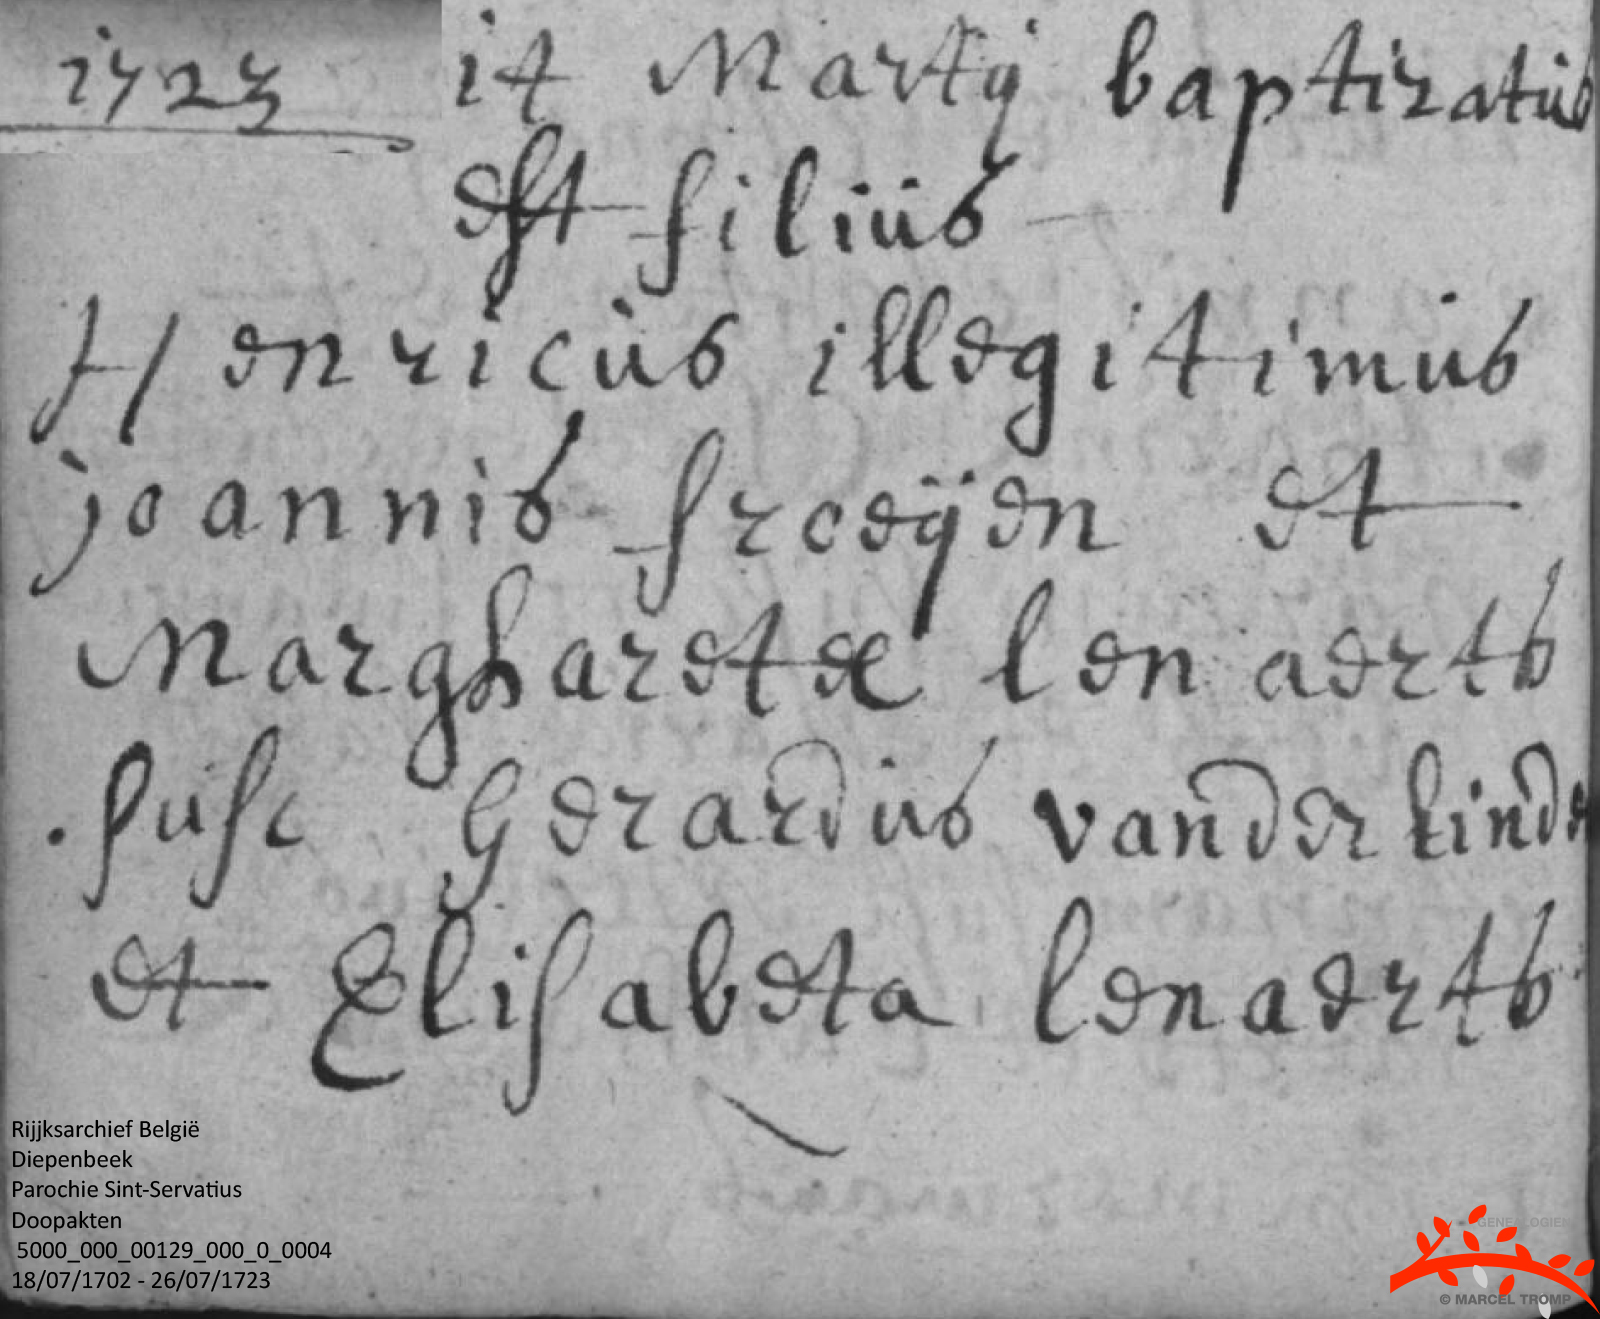 1723 it Martÿ baptizatus
est filius
Henricus illegitimus
joannis froeÿen et
Margharetæ lenaerts
. susc Gerardus vander kinde
et Elisabeta lenaerts
Rijjksarchief België
Diepenbeek
Parochie Sint-Servatius
Doopakten
5000_000_00129_000_0_0004
18/07/1702 - 26/07/1723
GENEALOGIE
© MARCEL TROMP